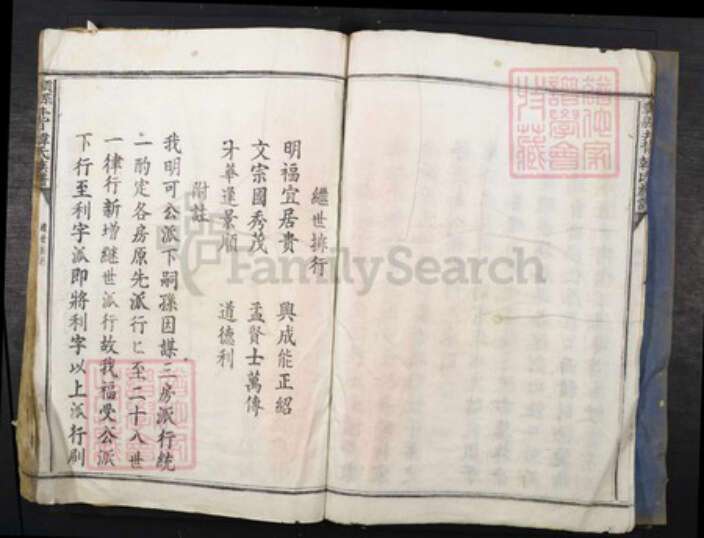 繼世排行
明福宜居貴　興成能正紹
文宗國秀茂　孟賢士萬傳
才華逢景順　道德利
附註
我明可公派下嗣孫因謀三房派行統
一酌定各房原先派行匕至二十八世
一律行新增継世派行故我福受公派
下行至利字派即將利字以上派行刷
繼世排行
FamilySearch